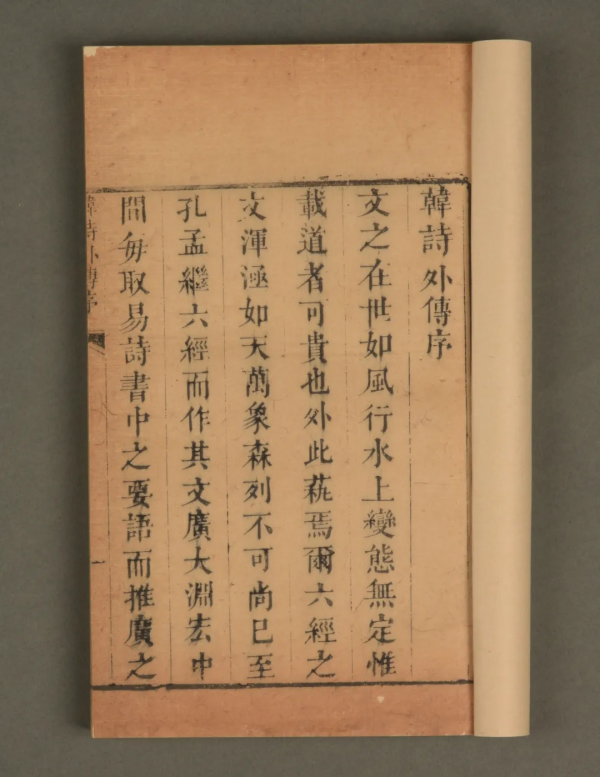 韓詩外傳序
文之在世如風行水上變態無定惟
載道者可貴也外此蓺焉爾六經之
文渾涵如天萬象森列不可尚已至
孔孟繼六經而作其文廣大淵宏中
間毎取易詩書中之要語而推廣之
韓詩外傳序